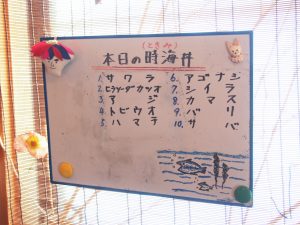 (ときみ)
本日の時海件
1. サワラ 6. アゴナシ
2. ヒラソーダカツオ 7. シイラ
3. アジ 8. カマス
4. トビウオ 9. バリ
5. ハマチ 10. サバ